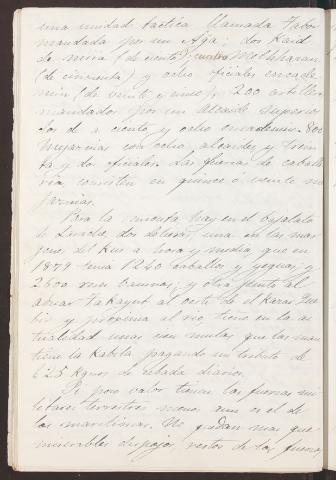 una unidad tactica llamada Tabor
mandada por un Aga, dos Kaid
de mia (de ciento), cuatro Mokhtaran
(de cincuenta) y ocho oficiales encade
min (de veinte y cinco); 200 artilleros
mandados por un Alcaide superior
dos de a ciento y ocho encademin. 800
con ocho alcaides y trein
ta y dos oficiales. Las fuerzas de caballe
ria consisten en quince ó veinte
Para la remonta hay en el bajalato
de Larache, dos una en las mar
genes del Kus a hora y media, que en
1879 tenia 1240 caballos y yeguas, y
2600 reses bacunas; y otra junto al
al oeste de el
y proxima al rio, tiene en la ac
tualidad unas cien mulas que las man
tiene la Kabila pagando un tributo de
625 Kgmos de cebada diarios.
Si poco valor tienen las fuerzas mi
litares terrestres menos aun es el de
las maritimas. No quedan mas que
miserables despojos, restos de las fuerzas